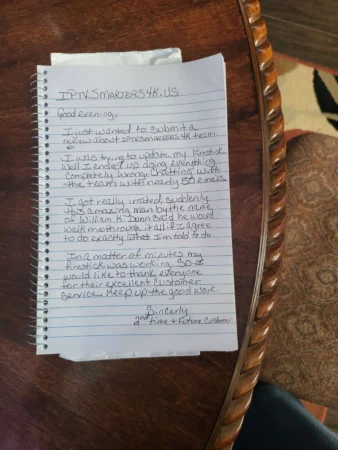 IPTVSMARTERS4K.US
Good evening,
I just wanted to submit a
review about IPTVSMARTERS4K team.
I was trying to update my firestick
Well I ended up doing everything
completely wrong chatting with
the team with nearly 50 emails
I got really irrated, suddenly
this amazing man by the name
of William K. Dunn said he would
walk me through it all if I agree
to do exactly what I'm told to do.
In a matter of minutes my
firestick was working. So I
would like to thank everyone
for their excellent customer
service. Keep up the good work.
Sincerly
2nd time + Future Customer